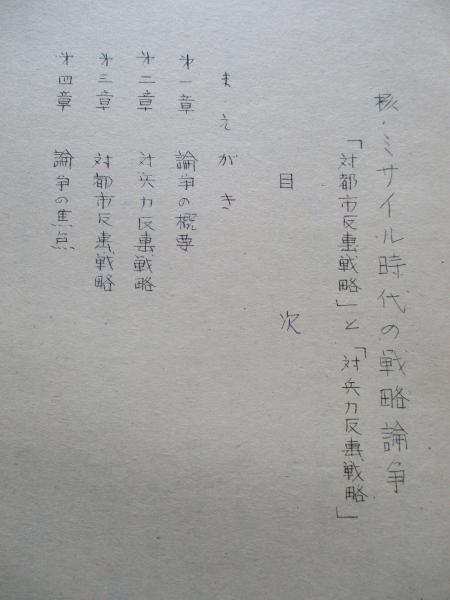 核・ミサイル時代の戦略論争
「対都市反撃戦略」と「対兵力反撃戦略」
目次
まえがき
第一章 論争の概要
第二章 対兵力反撃戦略
第三章 対都市反撃戦略
第四章 論争の焦点